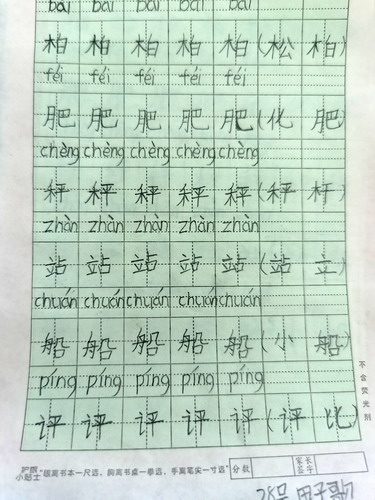 bǎi bǎi bǎi bǎi bǎi
柏 柏 柏 柏 柏 (松 柏)
féi féi féi féi féi
肥 肥 肥 肥 肥 (化 肥)
chèng chèng chèng chèng chèng
秤 秤 秤 秤 秤 (秤 杆)
zhàn zhàn zhàn zhàn zhàn
站 站 站 站 站 (站 立)
chuán chuán chuán chuán chuán
船 船 船 船 船 (小 船)
píng píng píng píng píng
评 评 评 评 评 (评 比)
不含荧光剂
护眼小贴士 "眼离书本一尺远,胸离书桌一拳远,手离笔尖一寸远" 分数 家长签字
28号